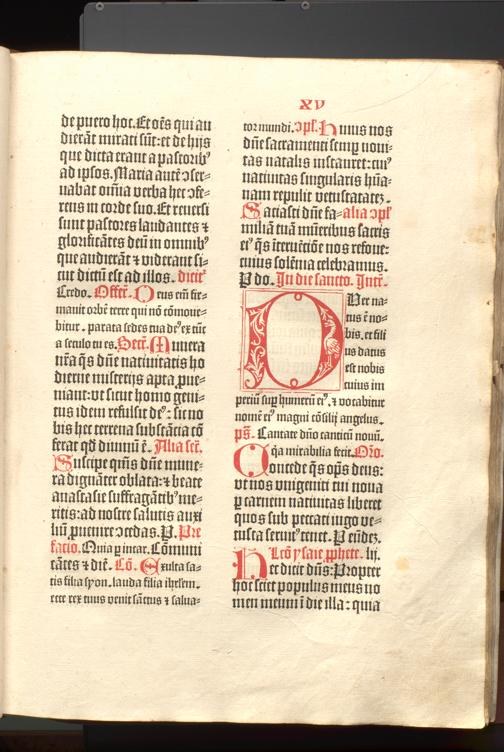 XV
de puero hoc. Et oēs qui au
dierāt mirati sūt: et de hijs
que dicta erant a pastoribꝰ
ad ipsos. Maria autē ↄser-
uabat oīnia verba hec ↄfe-
rens in corde suo. Et reuersi
sunt pastores laudantes ⁊
glorificātes deū in omnibꝰ
que audierāt ⁊ viderant si-
cut dictū est ad illos. dicitᷣ
Credo. Offert. Deus eīn fir-
mauit orbē terre qui nō cōmoue-
bitur. parata sedes tua deꝰ ex tūc
a seculo tu es. Secrē. Munera
nr̄a q̄s dn̄e natiuitatis ho
dierne misterijs apta ꝓue-
niant: vt sicut homo geni-
tus idem refulsit deꝰ: sic no
bis hec terrena substācia cō
ferat qd̄ diuinū ē. Alia scr̄.
Suscipe q̄ns dn̄e mune-
ra dignāter oblata: ⁊ beate
anastasie suffragātibꝰ me-
ritis: ad nostre salutis auxi
liū ꝓuenire ↄcedas. P. Pre
facio. Quia ꝑ incar. Cōmuni
cātes ⁊ diē. Cō. Exulta fi-
lia syon. lauda filia iherlem.
ecce rex tuus venit sāctus ⁊ salua-
tor mundi. ↄpl'. Huius nos
dn̄e sacramenti semꝑ noui-
tas natalis instauret: cuiꝰ
natiuitas singularis hūa-
nam repulit vetustatez.
Saciasti dn̄e fa- alia ↄpl'
miliā tuā mūeribus sacris
eiꝰ q̄s īteruētiōe nos refoue:
cuius solēnia celebramus.
P do. In die sancto. Intr̄.
PUer na-
tus ē no-
bis. et fili
us datus
est nobis
cuius im
periū suꝑ humerū eiꝰ. ⁊ vocabitur
nomē eiꝰ magni cōsilij angelus.
ps̄. Cantate dn̄o canticū nouū.
Qꝛ mirabilia fecit. Oro.
Concede q̄s oꝑs deus:
vt nos vnigeniti tui noua
ꝑ carnem natiuitas liberet
quos sub peccati iugo ve-
tusta seruiꝰ tenet. P eūdez.
Lcō ysaie ꝓphete. lij.
Hec dicit dn̄s: Propter
hoc sciet populus meus no
men meum ī die illa: quia